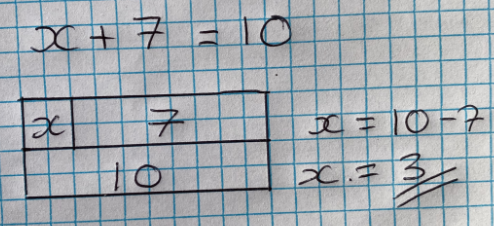 x + 7 = 10
x 7
10
x = 10 - 7
x = 3